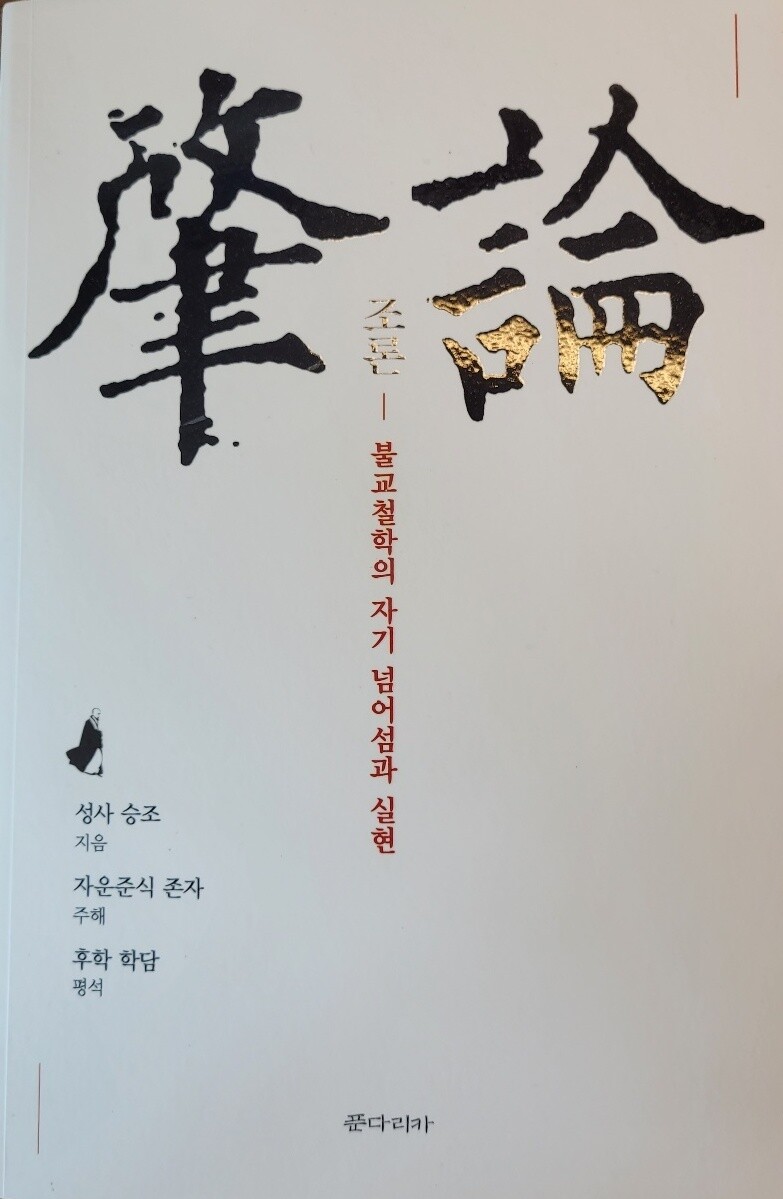 肇論
조론
불교철학의 자기 넘어섬과 실현
성사 승조
지음
자운준식 존자
주해
후학 학담
평석
푼다리카